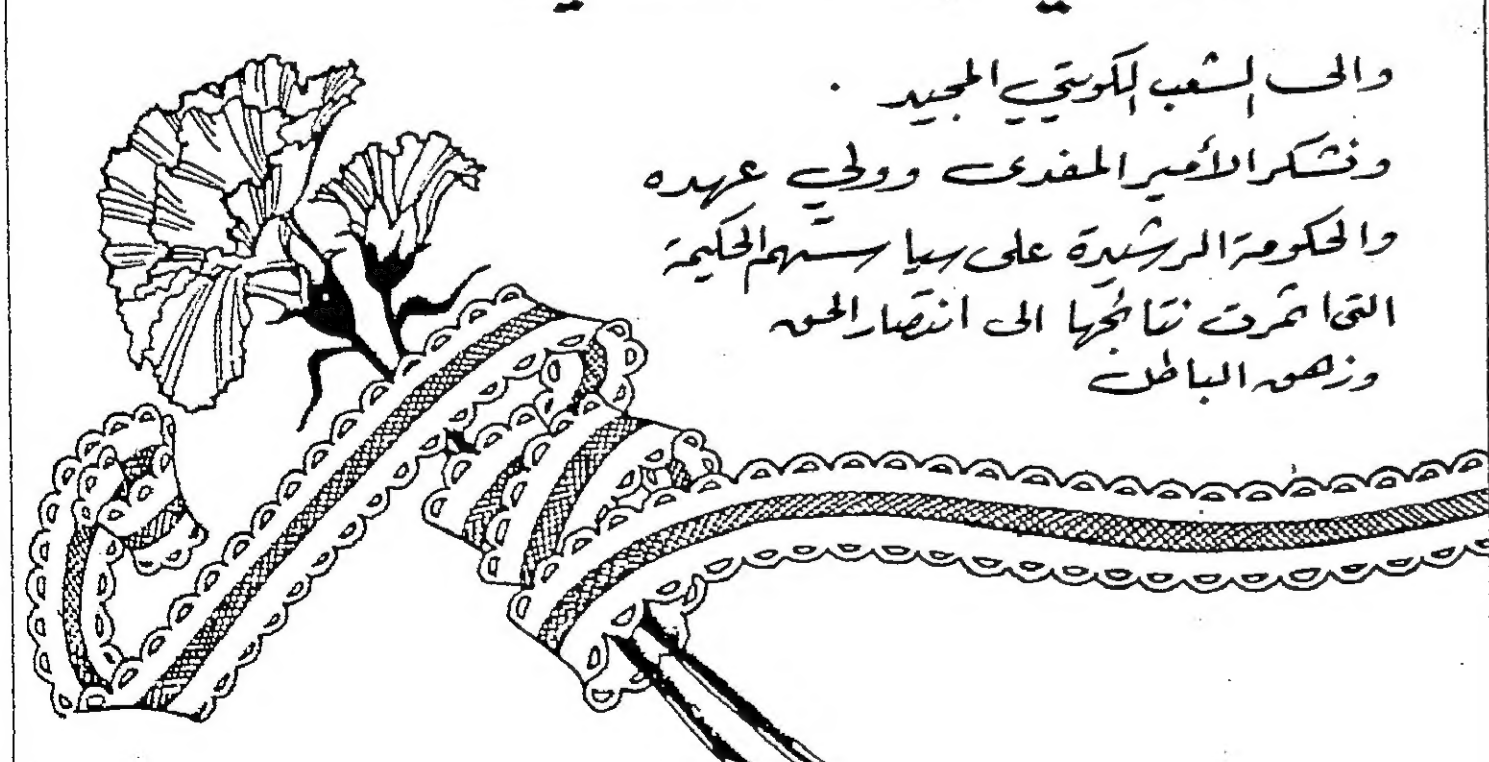 والى الشعب الكويتي المجيد .
ونشكر الأمير المفدى وولي عهده
والحكومة الرشيدة على سياستهم الحكيمة
التي اثمرت نتائجها الى انتصار الحق
وزهق الباطل